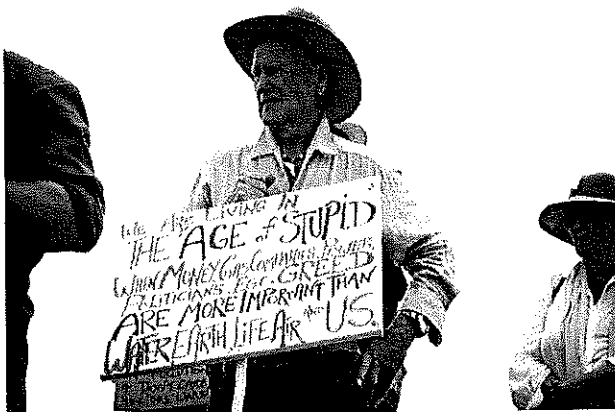 WE ARE LIVING IN
THE AGE of STUPID
WHEN MONEY GUNS POWER
POLITICIANS EGO GREED
ARE MORE IMPORTANT THAN
WATER EARTH LIFE AIR and US.